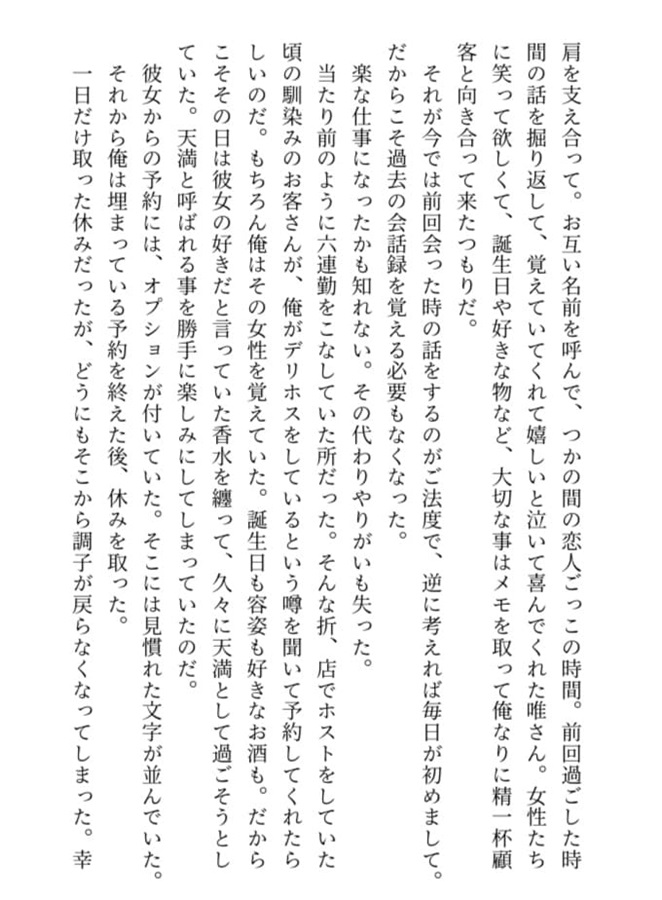 肩を支え合って。お互い名前を呼んで、つかの間の恋人ごっこの時間。前回過ごした時
間の話を掘り返して、覚えていてくれて嬉しいと泣いて喜んでくれた唯さん。女性たち
に笑って欲しくて、誕生日や好きな物など、大切な事はメモを取って俺なりに精一杯顧
客と向き合って来たつもりだ。
それが今では前回会った時の話をするのがご法度で、逆に考えれば毎日が初めまして。
だからこそ過去の会話録を覚える必要もなくなった。
楽な仕事になったかも知れない。その代わりやりがいも失った。
当たり前のように六連勤をこなしていた所だった。そんな折、店でホストをしていた
頃の馴染みのお客さんが、俺がデリホスをしているという噂を聞いて予約してくれたら
しいのだ。もちろん俺はその女性を覚えていた。誕生日も容姿も好きなお酒も。だから
こそその日は彼女の好きだと言っていた香水を纏って、久々に天満として過ごそうとし
ていた。天満と呼ばれる事を勝手に楽しみにしてしまっていたのだ。
彼女からの予約には、オプションが付いていた。そこには見慣れた文字が並んでいた。
それから俺は埋まっている予約を終えた後、休みを取った。
一日だけ取った休みだったが、どうにもそこから調子が戻らなくなってしまった。幸